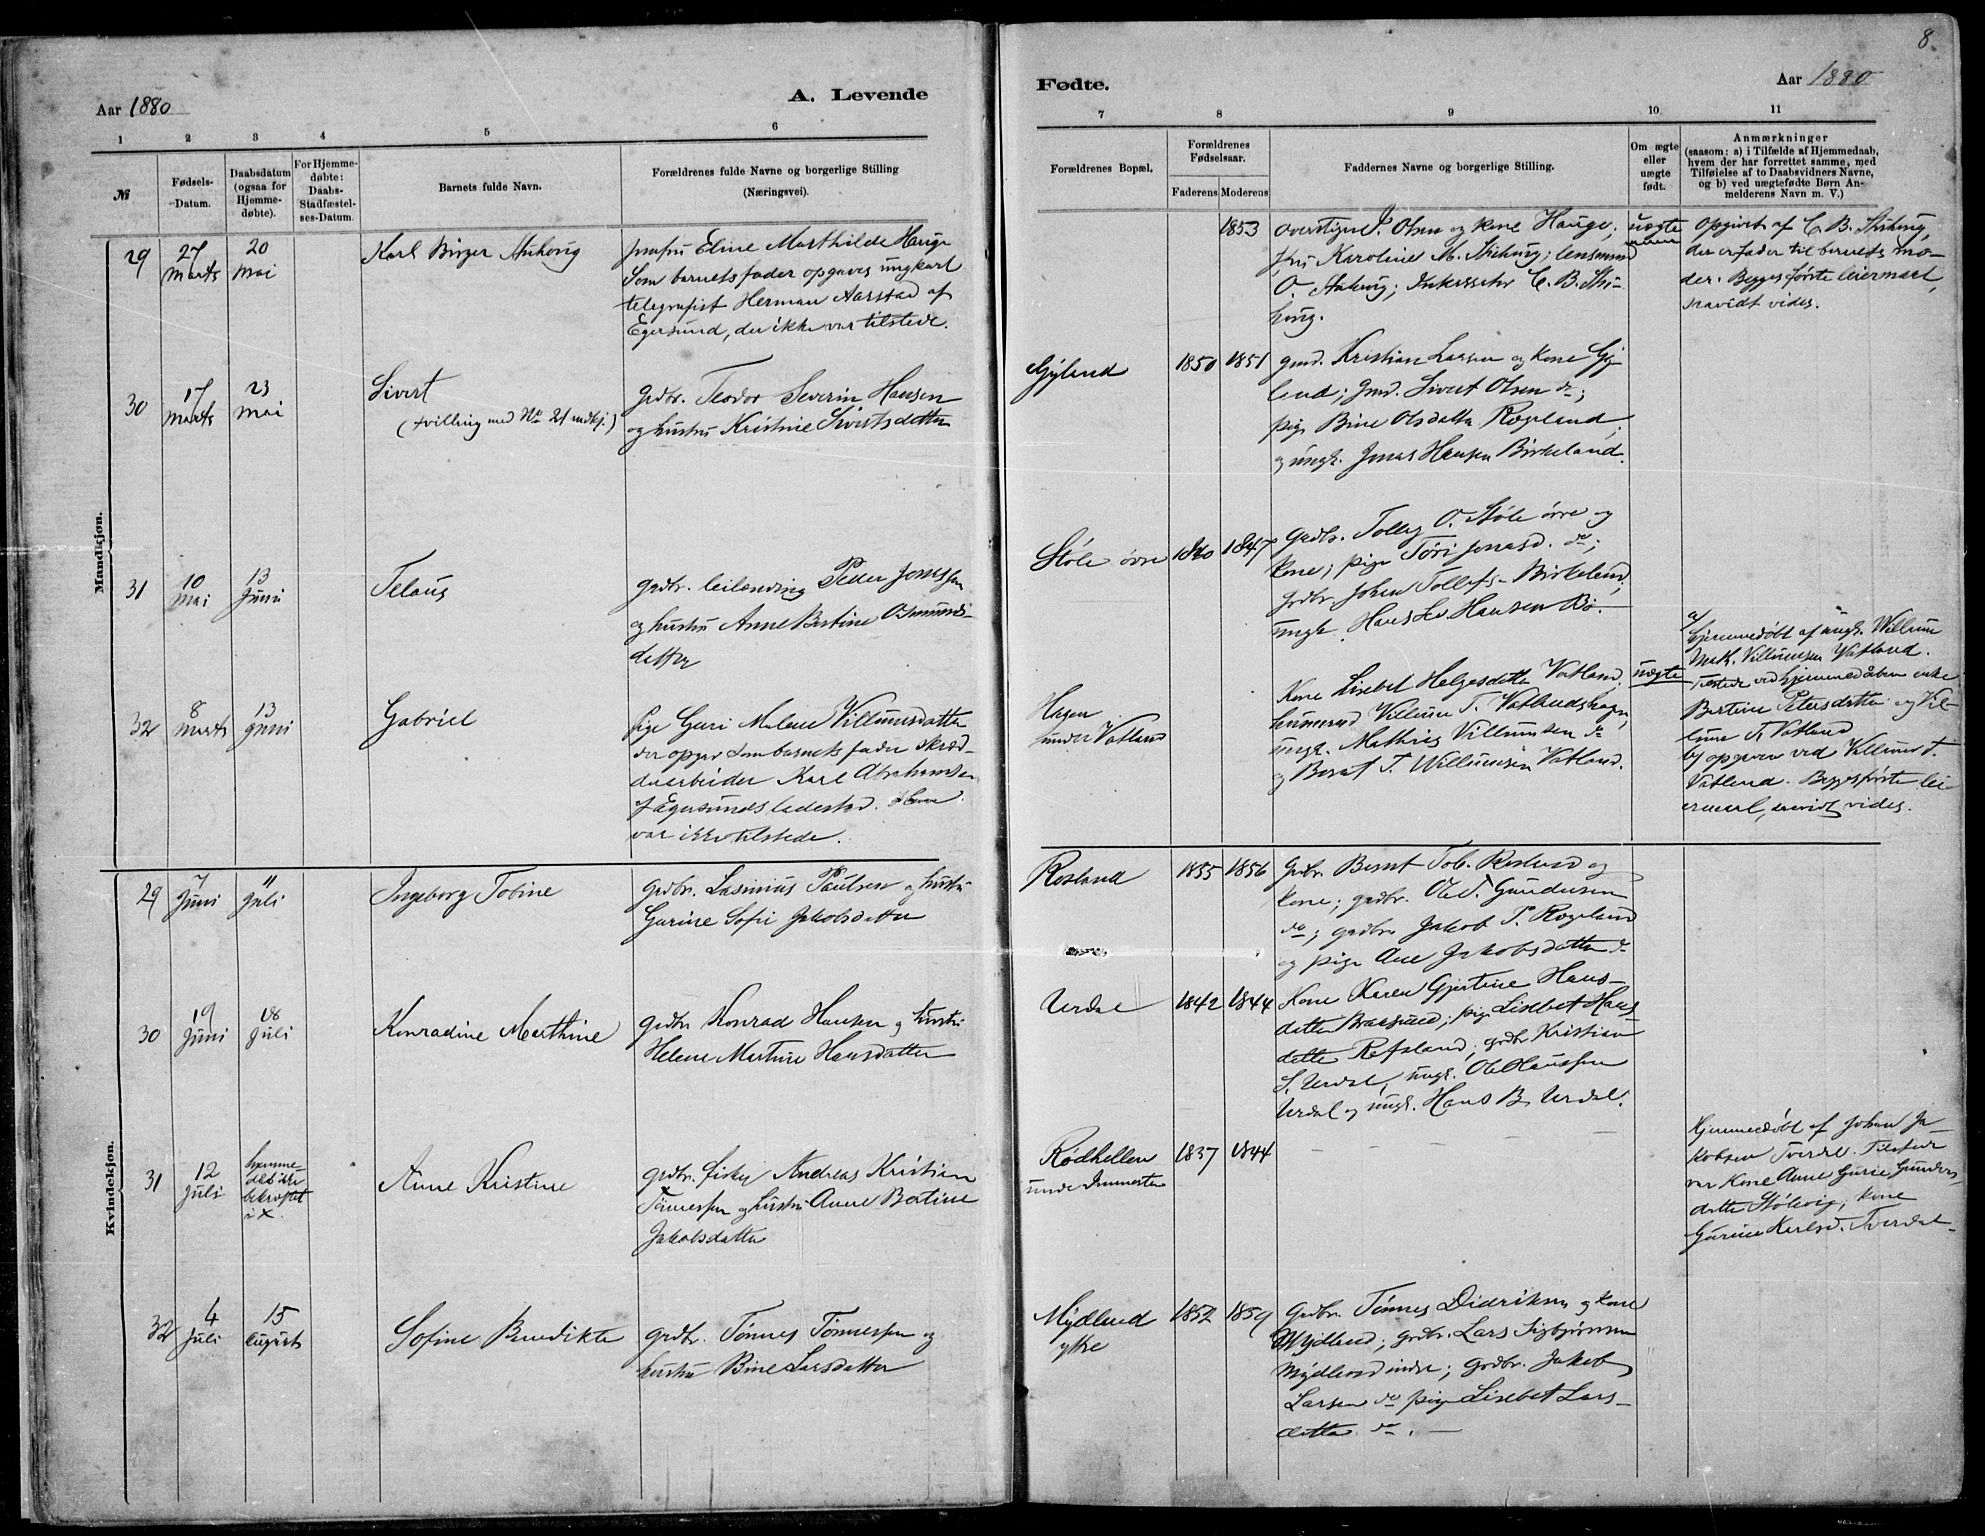 8
Aar 1880
A. Levende
Fødte.
Aar 1880
1 2 3 4 5 6 7 8 9 10 11
№
Fødsels-
Datum.
Daabsdatum
(ogsaa for
Hjemme-
døbte).
For Hjemme-
døbte:
Daabs-
Stadfæstel-
ses-Datum.
Barnets fulde Navn.
Forældrenes fulde Navne og borgerlige Stilling
(Næringsvei).
Forældrenes Bopæl.
Forældrenes
Fødselsaar.
Faderens Moderens
Faddernes Navne og borgerlige Stilling.
Om ægte
eller
uægte
født.
Anmærkninger
(saasom: a) i Tilfælde af Hjemmedaab,
hvem der har forrettet samme, med
Tilføielse af to Daabsvidners Navne,
og b) ved uægtefødte Børn An-
melderens Navn m. V.)
Mandkjøn.
29
27
Marts
20
Mai
Karl Birger
Eline Marthilde Hauge
Som barnets fader opgaves ungkarl
telegrafist Herman Aarstad af
Egersund, der ikke var tilstede.
1853
Olsen og kone Hauge;
Karoline M. lensmand
O. C. B.
uægte
Opgivet af C. B.
der er fader til barnets mo-
der. Begges første leiermaal,
saavidt vides.
30
17
Marts
23
Mai
Sivert
(tvilling med No 21 )
grdbr. Teodor Severin Hansen
og hustru Kristine Sivertsdatter
Gyland
1850
1851
gmd. Kristian Larsen og kone Gy-
land; gmd. Sivert Olsen do;
pige Bine Olsdatter Rægeland,
og ungk. Jonas Hansen Birkeland.
31
10
Mai
13
Juni
Telaus
grdbr. leilending Peder Jonassen
og hustru Anne Bertine Osmunds-
datter
Støle øvre
1840
1847
Grdbr. Tolleg O. Støle øvre og
kone; pige Tøri Jonasd. do;
grdbr. Johan Tollefs. Birkeland,
ungk. Hans Hansen Bø.
32
8
Marts
13
Juni
Gabriel
pige Guri Malene Villumsdatter
der opgav som barnets fader skræd-
derarbeider Karl Abrahamsen
af Egersunds ladested. Han
var ikke tilstede.
Hagen
under Vatland
Kone Lisebet Helgesdatter Vatland,
husmand Villum T. Vatlandshagen,
ungk. Mathias Villumsen do
og Bernt T. Willumsen Vatland.
uægte
a)
Hjemmedøbt af ungk. Willum
Math. Villumsen Vatland.
Tilstede ved hjemmedåben enke
Bertine Petersdatter og Vil-
lum T. Vatland
b) opgiven ved Villum T.
Vatland. Begges første lei-
ermaal, saavidt vides.
Kvindekjøn.
29
7
Juni
11
Juli
Ingeborg Tobine
grdbr. Lasinius Paulsen og hustru
Gurine Sofie Jakobsdatter
Rosland
1855
1856
Grdbr. Bernt Tob. Rosland og
kone; grdbr. Ole T. Gundersen
do; grdbr. Jakob P. Rægeland
og pige Ane Jakobsdatter do
30
19
Juni
18
Juli
Konradine Marthine
grdbr. Konrad Hansen og hustru
Helene Martine Hansdatter
Urdal
1842
1844
Kone Karen Gjertine Hans-
datter; pige Lisebet Hans-
datter Refsland; grdbr. Kristian
S. Urdal, ungk. Ole Hanssen
Urdal og ungk. Hans B. Urdal.
31
12
Juli
hjemme-
døbt
bekræftet
i X.
Anne Kristine
grdbr. fisker Andreas Kristian
Tønnessen og hustru Anne Bertine
Jakobsdatter
Rødhellen
under Immerstein
1837
1844
Hjemmedøbt af Johan Ja-
kobsen Tverdal. Tilstede
var kone Anne Gurie Gunders-
datter Stølevig, kone
Gurine Karlsd. Tverdal.
32
4
Juli
15
August
Sofine Benedikte
grdbr. Tønnes Tønnessen og
hustru Bine Larsdatter
Mydland
ytre
1852
1859
Grdbr. Tønnes Didriksen og kone
Mydland; grdbr. Lars Sigbjørnsen
Mydland indre; grdbr. Jakob
Larsen do pige Lisebet Lars-
datter do.